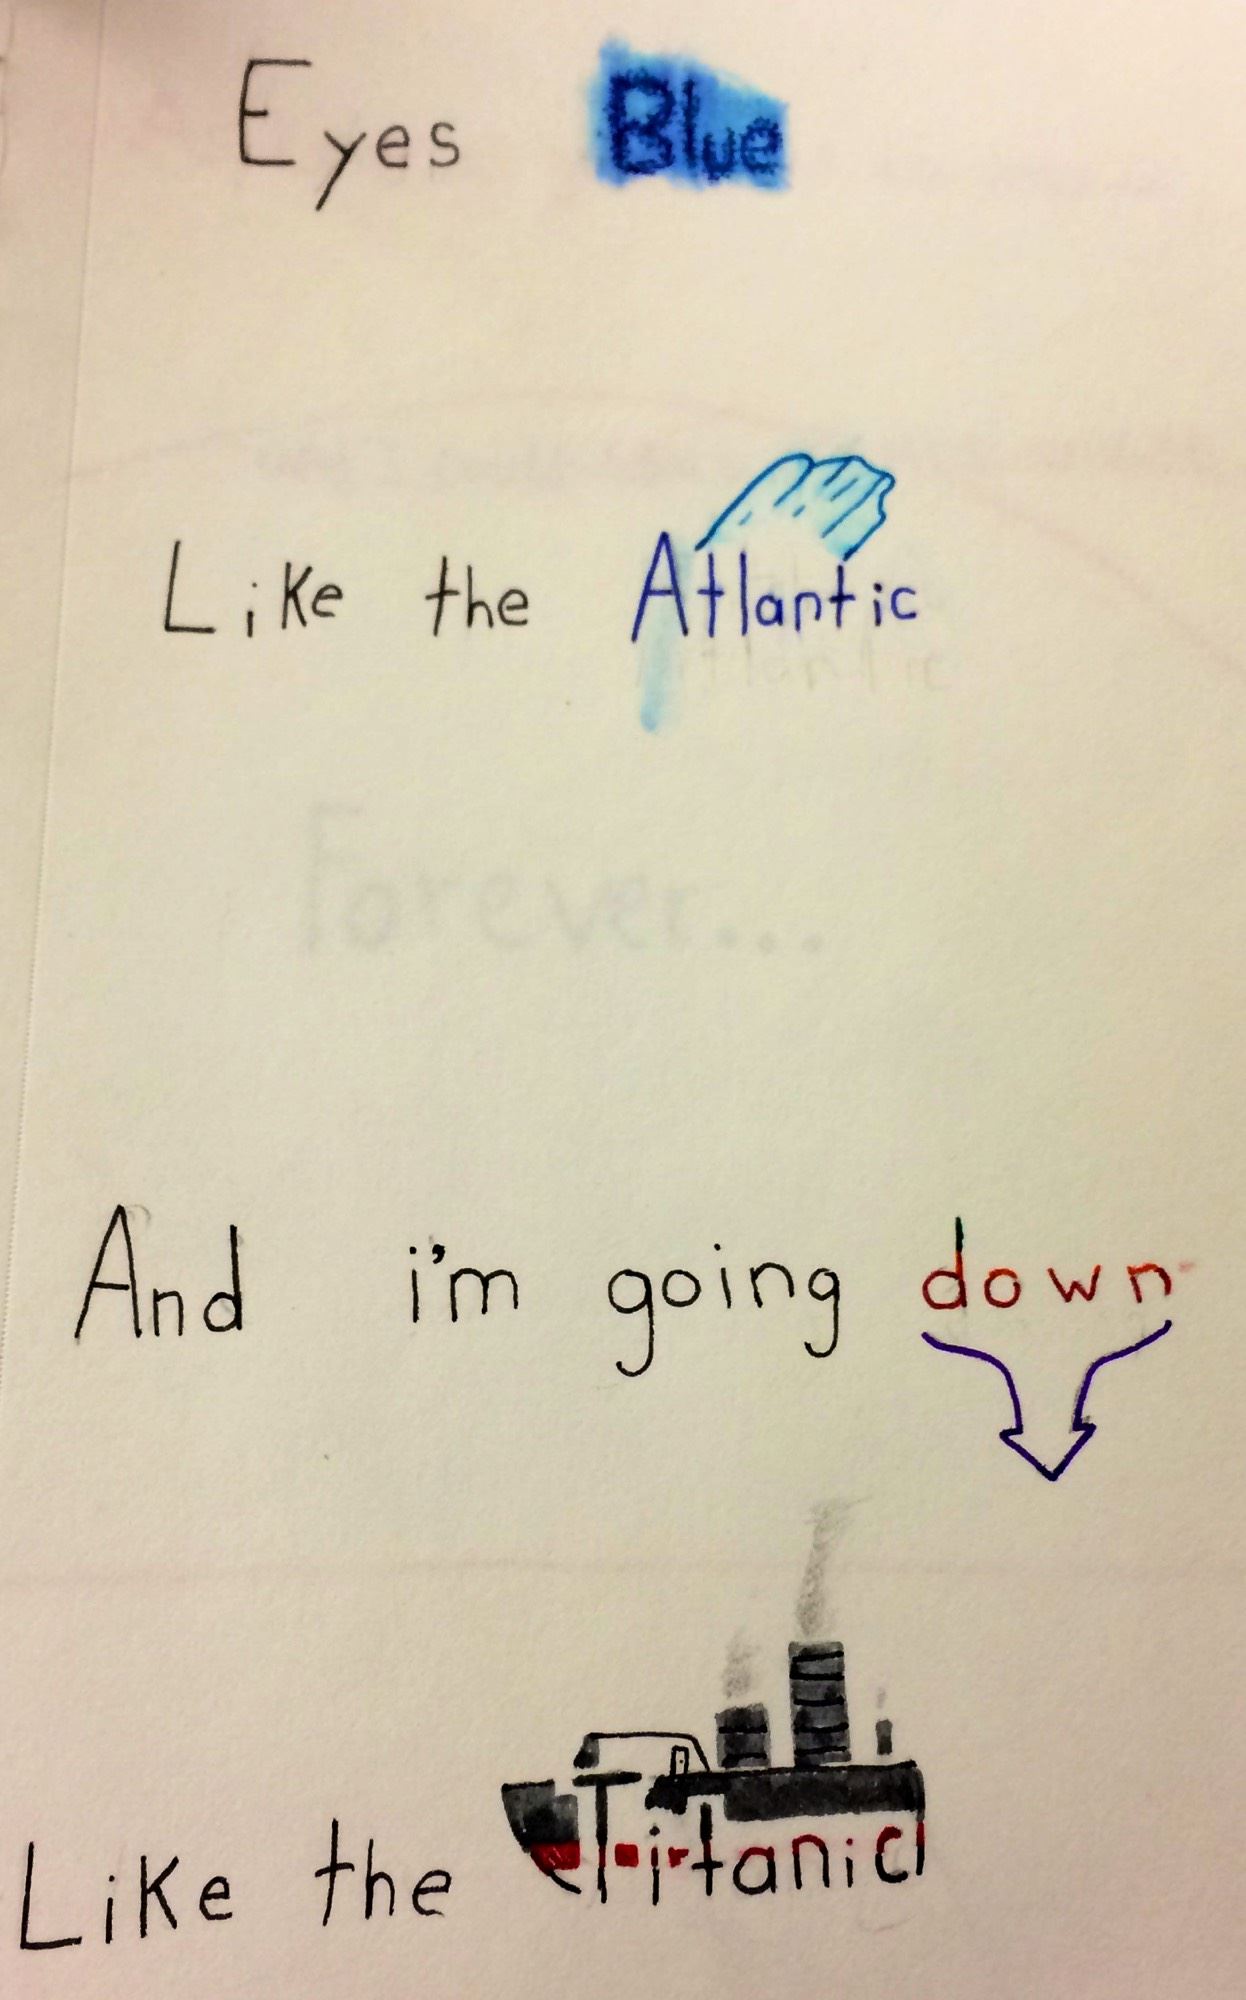 Eyes Blue
Like the Atlantic
Forever...
And i'm going down
Like the Titanic